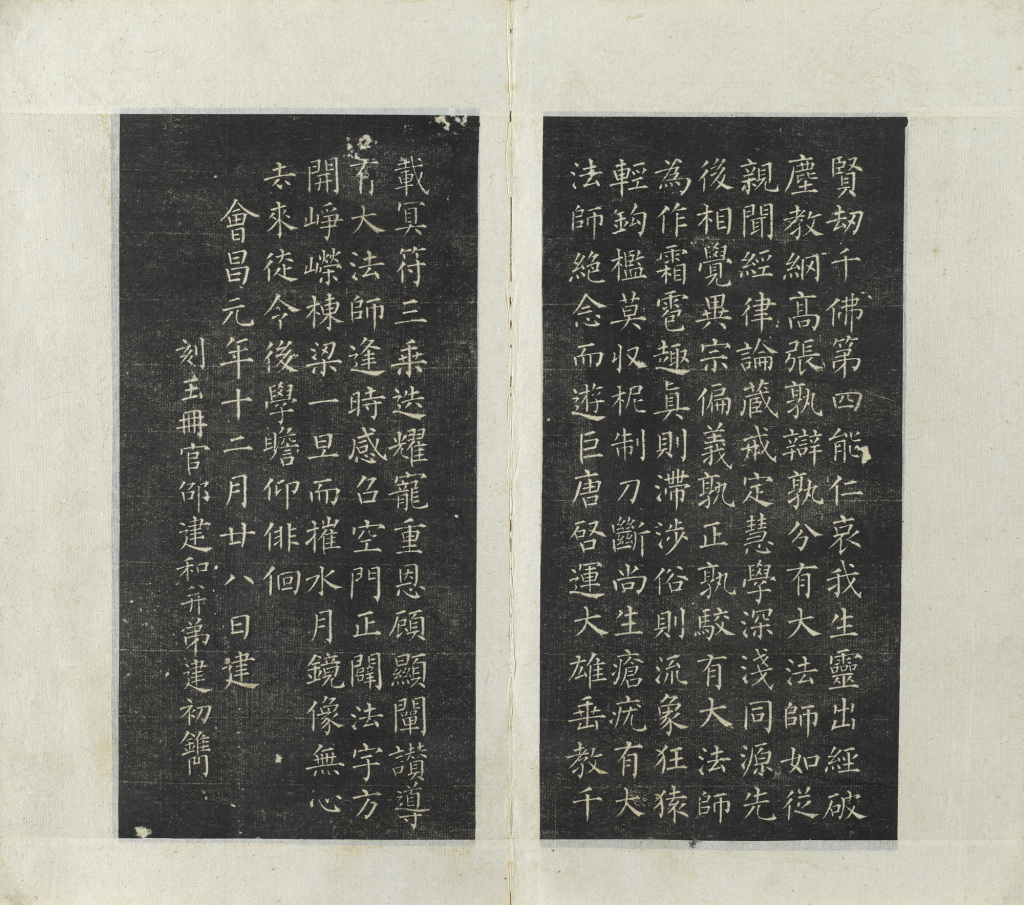 賢劫千佛第四能仁哀我生靈出經破
塵教綱髙張孰辯孰分有大法師如從
親聞經律論藏戒定慧學深淺同源先
後相覺異宗偏義孰正孰駮有大法師
為作霜雹趣真則滯涉俗則流象狂猿
輕鈎檻莫収柅制刀斷尚生瘡疣有大
法師絶念而遊巨唐啓運大雄垂教千
載冥符三乘迭耀寵重恩顧顯闡讃導
有大法師逢時感召空門正闢法宇方
開崢嶸棟梁一旦而摧水月鏡像無心
去來徒令後學瞻仰俳佪
會昌元年十二月廿八日建
刻玉冊官邵建和并弟建初鐫